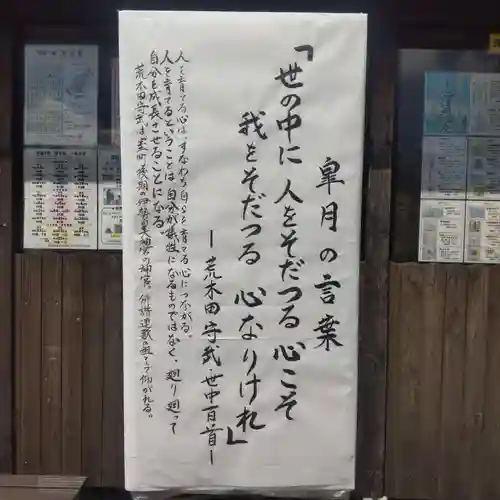 皐月の言葉
「世の中に 人をそだつる 心こそ
我をそだつる 心なりけれ」
ー荒木田守武・世中百首ー
人を育てる心は、すなわち自らを育てる心につながる。
人を育てるということは、自分が犠牲になるものではなく、廻り廻って
自分を成長させることになる。
荒木田守武は室町後期の伊勢皇太神宮の神官。俳諧連歌の祖として仰がれる。